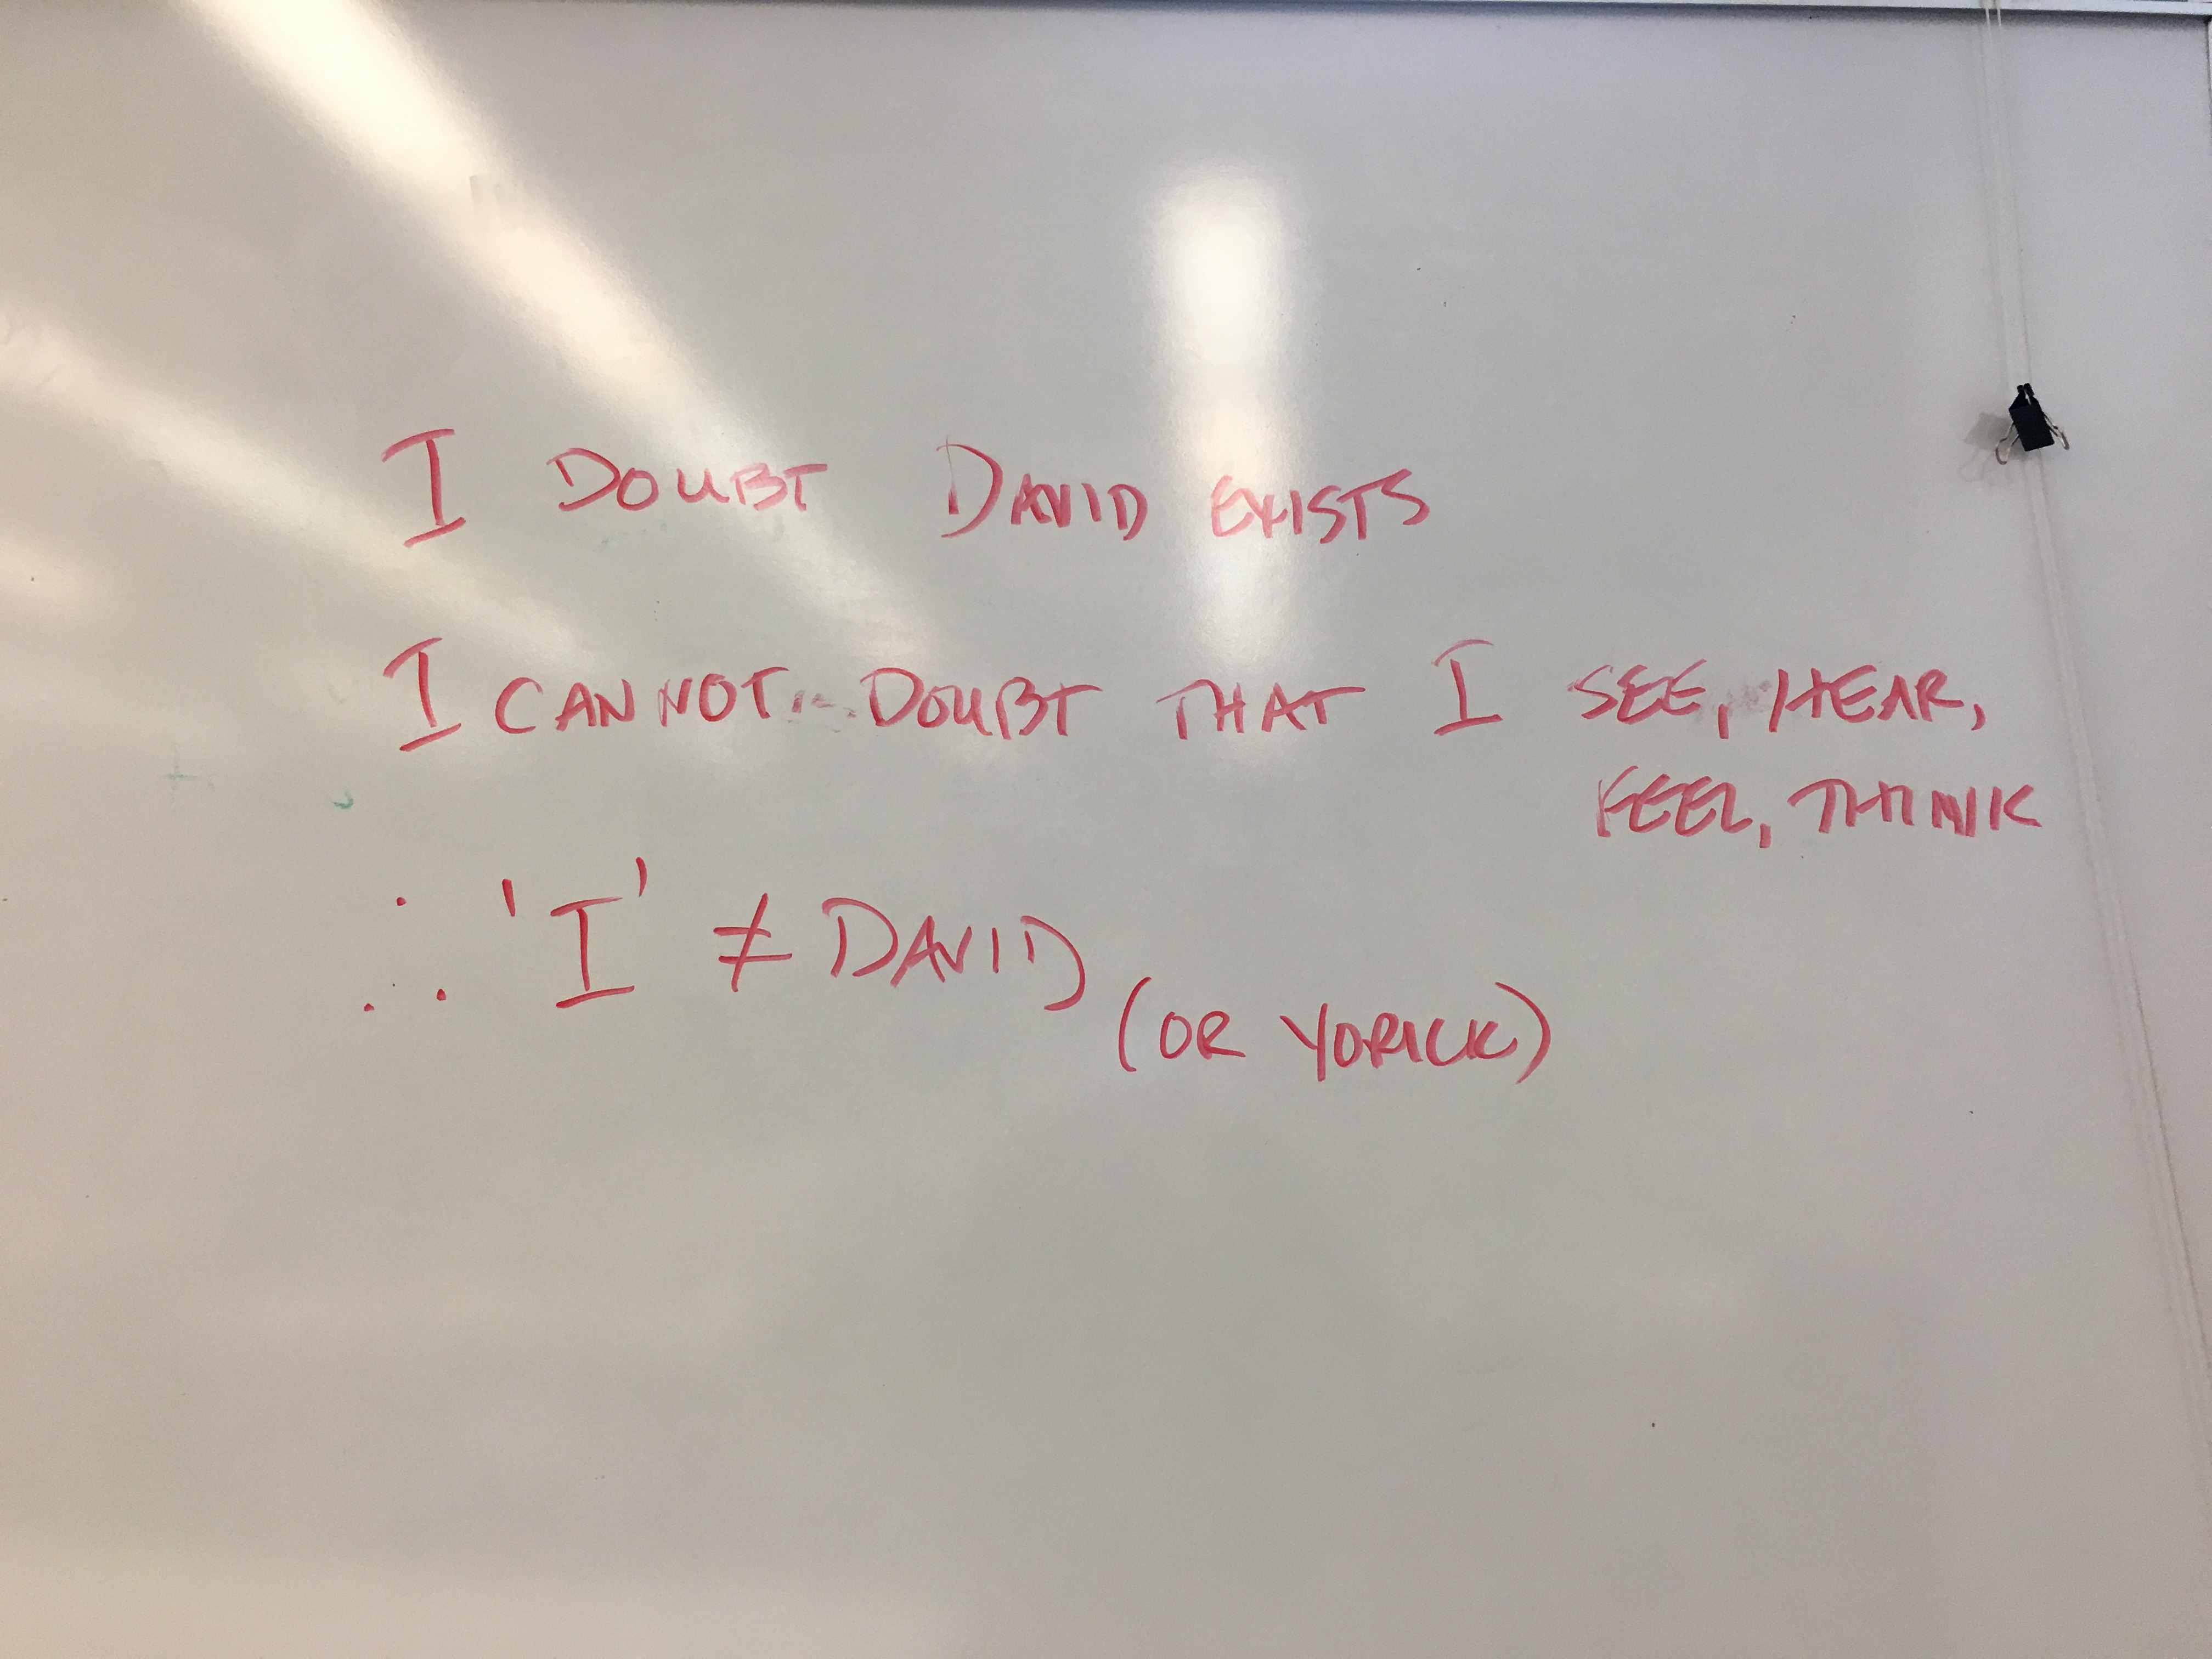 I DOUBT DAVID EXISTS
I CANNOT DOUBT THAT I SEE, HEAR,
FEEL, THINK
∴ 'I' ≠ DAVID
(OR YORICK)